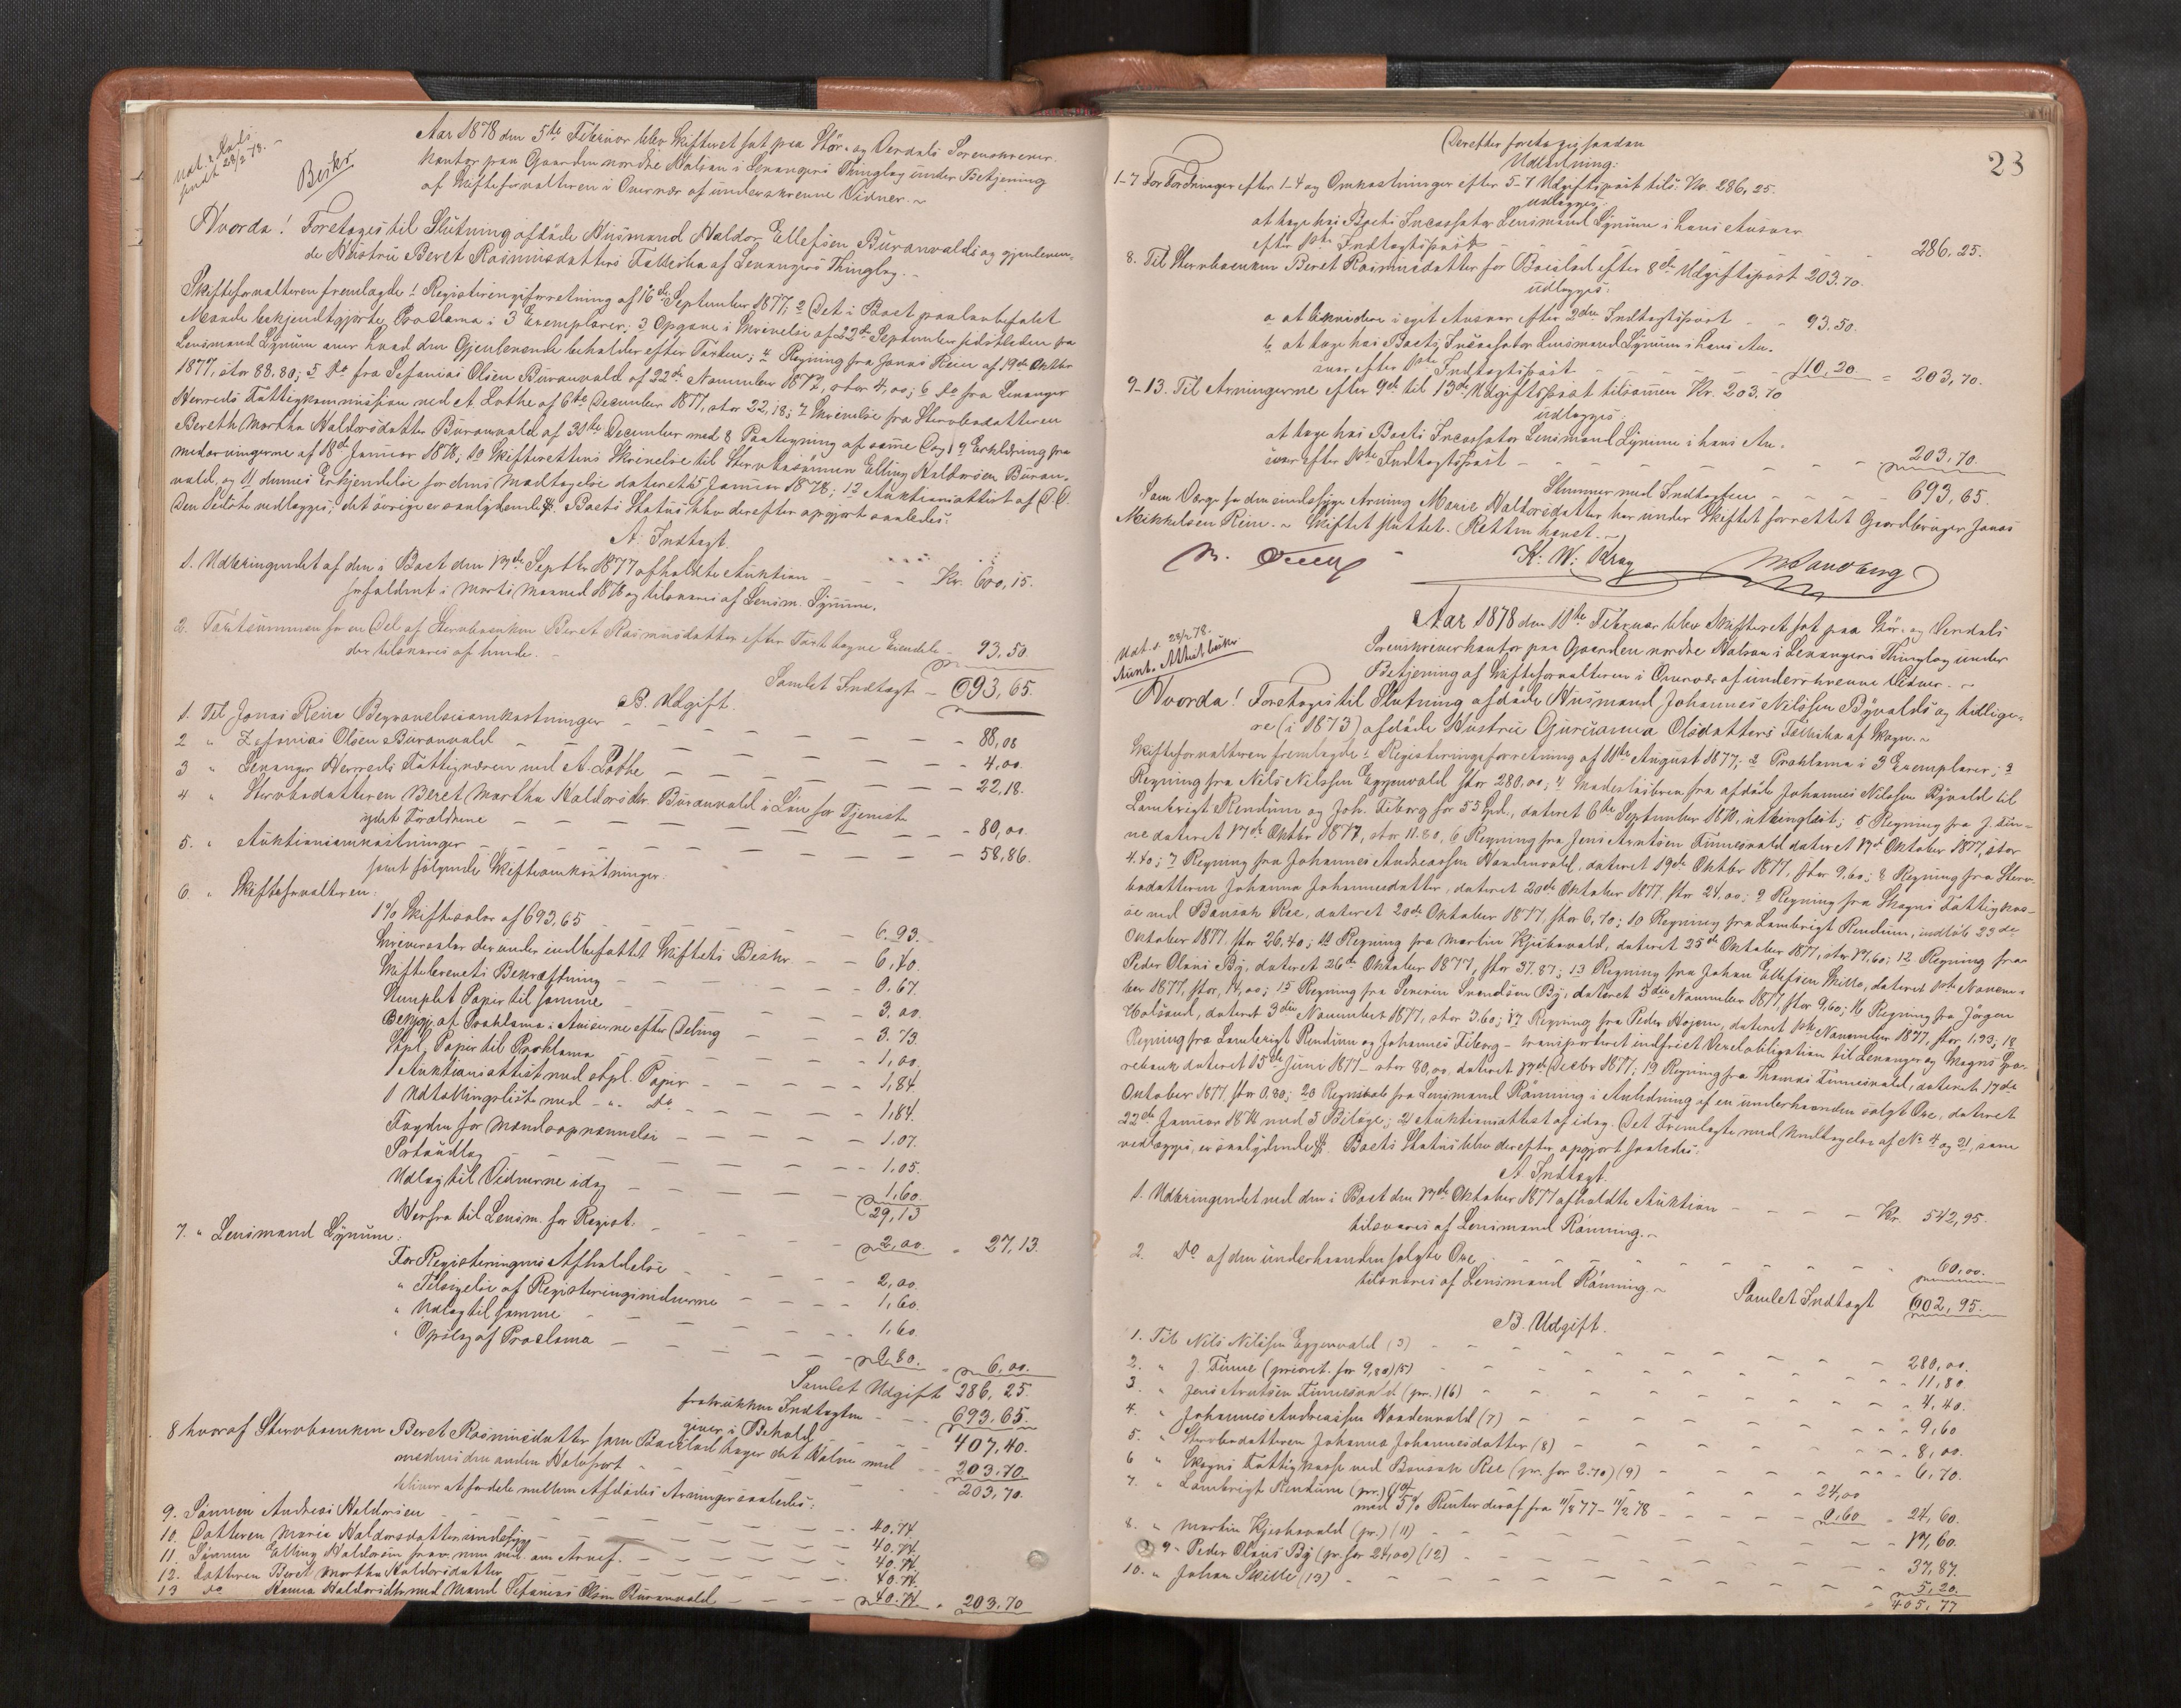 Aar 1878 den 5te Februar blev Skifteret sat paa Stør- og Verdals Sorenskriver-
kontor paa Gaarden nordre Halsan i Levangers Thinglag under Betjening
af Skifteforvalteren i Overvær af underskrevne Vidner. ~
Beskr.
Hvorda! Foretages til Slutning afdøde Husmand Haldor Ellefsen Buranvalds og gjenleven-
de Hustru Beret Rasmusdatters Fællesbo af Levangers Thinglag. ~
Skifteforvalteren fremlagde: 1 Registeringsforretning af 16de September 1877; 2 Det i Boet paalovbefalet
Maade bekjendtgjorte Proclama i 3 Exemplarer; 3 Opgave i Skrivelse af 22de September sidstleden fra
Lensmand Lynum over hvad den Gjenlevende beholder efter Taxten; 4 Regning fra Jonas Rein af 19de Oktbr
1877, stor 88.80; 5 Do fra Sefanias Olsen Buranvald af 22de November 1877, stor 4,00; 6 Do fra Levanger
Herreds Fattigkommission ved A. Lothe af 6te December 1877, stor 22,18; 7 Skrivelse fra Stervbodatteren
Bereth Martha Haldorsdatter Buranvald af 31te December med 8 Paategning af samme Dag; 9 Erklæring fra
medarvingerne af 18de Januar 1878; 10 Skifterettens Skrivelse til Stervbosønnen Elling Haldorsen Buran-
vald, og 11 dennes Erkjendelse for dens Modtagelse dateret 15 Januar 1878; 12 Auktionsattest af D.D.
Den sidste vedlægges; det øvrige er saalydende ##. Boets Status blev derefter opgjort saaledes:
A. Indtægt.
1. Udbringendet af den i Boet den 17de Septbr 1877 afholdte Auktion — — — Kr. 600,15.
forfaldent i Marts Maaned 1878 og tilsvares af Lensm. Lynum.
2. Taxtsummen for en Del af Stervboenken Beret Rasmusdatter efter Taxt tagne Eiendele — 93,50.
der tilsvares af hende. —
Samlet Indtægt — 693,65.
B. Udgift.
1. Til Jonas Rein Begravelsesomkostninger — — — — 88,08
2 " Zefanias Olsen Buranvald — — — — 4,00.
3 " Levanger Herreds Fattigvæsen ved A. Lothe — — — — 22,18.
4 " Stervbodatteren Beret Martha Haldorsdtr. Buranvald i Løn for Tjeneste
ydet Forældrene — — — — 80,00
5. " Auktionsomkostninger — — — — 58,86.
samt følgende Skifteomkostninger:
6. " Skifteforvalteren:
1% Skiftesalær af 693,65 — — — 6.93.
Skriversalær derunder indbefattet Skiftets Beskr. — — 6,40.
Skiftebrevets Bekræftning — — — 0.67.
Stemplet Papir til samme — — — 3.00.
Bekjgj. af Proklama i Aviserne efter Deling — — — 3.73.
Stpl. Papir til Proklama — — — 1,00.
1 Auktionsattest med stpl. Papir — — — 1,84
1 Udtællingsliste med — " — Do — — — 1,84.
Fogden for Mandsopnævnelse — — — 1,07.
Portoudlæg — — — 1,05.
Udlæg til Vidnerne idag — — — 1,60.
29,13
Herfra til Lensm. for Regist. — — — 2,00. = 27,13.
7. " Lensmand Lynum:
For Registeringens Afholdelse — — — 2,00.
" Tilsigelse af Registeringsvidnerne — — — 1,60.
" Udlæg til samme — — — 1,60.
" Opslag af Proclama — — — 0.80. = 6,00.
Samlet Udgift 286,25.
fratrukken Indtægten — — 693,65.
giver i Behold — — 407,40.
8 hvoraf Stervboenken Beret Rasmusdatter som Boeslod tager det Halve med — 203.70
medens den anden Halvpart — — — 203,70.
bliver at fordele mellem Afdødes Arvinger saaledes:
9. Sønnen Andreas Haldorsen — — — 40.74.
10. Datteren Maria Haldorsdatter sindssyg — — — 40.74.
11. Sønnen Elling Haldorsen — — — 40.74.
12. Datteren Beret Martha Haldorsdatter — — — 40.74.
13 Do Hanna Haldorsdtr. med Mand Sefanias Olsen Buranvald — — — 40.74. = 203.70
23
Derefter foretoges saadan
Udlodning:
1–7 For Fordringer efter 1–4 og Omkostninger efter 5–7 Udgiftspost tils. Kr. 286,25.
udlægges:
at tage hos Boets Incassator Lensmand Lynum i hans Ansvar
efter 1ste Indtægtspost — — — 286,25.
8. Til Stervboenken Beret Rasmusdatter for Boeslod efter 8de Udgiftspost 203.70.
udlægges:
a at likvidere i eget Ansvar efter 2den Indtægtspost — — 93.50.
b at tage hos Boets Incassator Lensmand Lynum i hans An-
svar efter 1ste Indtægtspost — — — 110,20 = 203,70.
9–13. Til Arvingerne efter 9de til 13de Udgiftspost tilsammen Kr. 203.70
udlægges:
at tage hos Boets Incassator Lensmand Lynum i hans An-
svar efter 1ste Indtægtspost — — — 203,70.
Stemmer med Indtægten — — — 693,65.
Som Værge for den sindssyge Arving Marie Haldorsdatter har under Skiftet forrettet Gaardbruger Jonas
Mikkelsen Rein. ~ Skiftet sluttet. Retten hævet. —
K. W. Krog
M Sandberg
Udt. s. 28/2 78.
Aukt. Attest
Aar 1878 den 11te Februar blev Skifteret sat paa Stør- og Verdals
Sorenskriverkontor paa Gaarden nordre Halsan i Levangers Thinglag under
Betjening af Skifteforvalteren i Overvær af underskrevne Vidner. ~
Hvorda! Foretages til Slutning afdøde Husmand Johannes Nilssen Byvalds og tidlige-
re (i 1873) afdøde Hustru Gurianna Olsdatters Fællesbo af Skogn. ~
Skifteforvalteren fremlagde: 1 Registeringsforretning af 11te August 1877; 2 Proklama i 3 Exemplarer; 3
Regning fra Nils Nilssen Eggenvald stor 280,00; 4 fra afdøde Johannes Nilssen Byvald til
Lambrigt Rendum og Joh. Fiborg for 55 Spd., dateret 6te September 1870, utinglæst; 5 Regning fra J. Fin-
ne dateret 17de Oktbr 1877, stor 11.80, 6 Regning fra Jens Arntsen Finnesvald dateret 17de Oktober 1877, stor
4.40; 7 Regning fra Johannes Andreassen Haadenvald, dateret 19de Oktbr 1877, stor 9,60; 8 Regning fra Sterv-
bodatteren Johanna Johannesdatter, dateret 20de Oktober 1877 stor 24,00; 9 Regning fra Skogns Fattigkas-
se ved Ree, dateret 20de Oktober 1877, stor 6,70; 10 Regning fra Lambrigt Rendum, indløb 22de
Oktober 1877. stor 26,40; 11 Regning fra Martin, dateret 25de Oktober 1877, stor 17,60; 12 Regning fra
Peder Olaus By, dateret 26de Oktober 1877, stor 37.87; 13 Regning fra Johan Ellefsen Skille, dateret 1ste Novem-
ber 1877, stor; 15 Regning fra Severin Svendsen By, dateret 3die November 1877, stor 9,60; 16 Regning fra Jørgen
dateret 3die November 1877, stor 3,60; 17 Regning fra Peder Hojem, dateret 1ste November 1877, stor 1.93; 18
Regning fra Lambrigt Rendum og Johannes Fiborg — transporteret indfriet Vexelobligation til Levanger og Skogns Spa-
rebank dateret 15de Juni 1877 — stor 80,00. dateret 17de Decbr 1877; 19 Regning fra Thomas Finnesvald, dateret 17de
Oktober 1877, stor 0.80; 20 Regnskab fra Lensmand Rønning i Anledning af en underhaanden solgt Oxe, dateret
22de Januar 1878 med 5 Bilage; 21 Auktionsattest af idag. Det Fremlagte med Undtagelse af No 4 og 21, som
vedlægges, er saalydende ##. Boets Status blev derefter opgjort saaledes:
A. Indtægt.
1. Udbringendet ved den i Boet den 17de Oktober 1877 afholdte Auktion — — — Kr. 542,95.
tilsvares af Lensmand Rønning. ~
2. Do af den underhaanden solgte Oxe — — — 60,00.
tilsvares af Lensmand Rønning. ~
Samlet Indtægt 602,95.
B. Udgift.
1. Til Nils Nilssen Eggenvald (3) — — — 280,00.
2. " J. Finne (prioret. for 9,80) (5) — — — 11,80
3. " Jens Arntsen Finnesvald (pr.) (6) — — — 4,40.
4. " Johannes Andreassen Haadenvald (7) — — — 9,60
5. " Stervbodatteren Johanna Johannesdatter (8) — — — 8,00.
6 " Skogns Fattigkasse ved Ree (pr. for 2.70) (9) — — — 6,70.
7. " Lambrigt Rendum (pr.) (10) — — — 24,00
med 5% Renter deraf fra 11/8 77 – 11/2 78 — — — 0,60 = 24,60.
8. " Martin (pr.) (11) — — — 17,60.
9 " Peder Olaus By (pr. for 24,00) (12) — — — 37,87.
10. " Johan Skille (13) — — — 5,20.
405,77